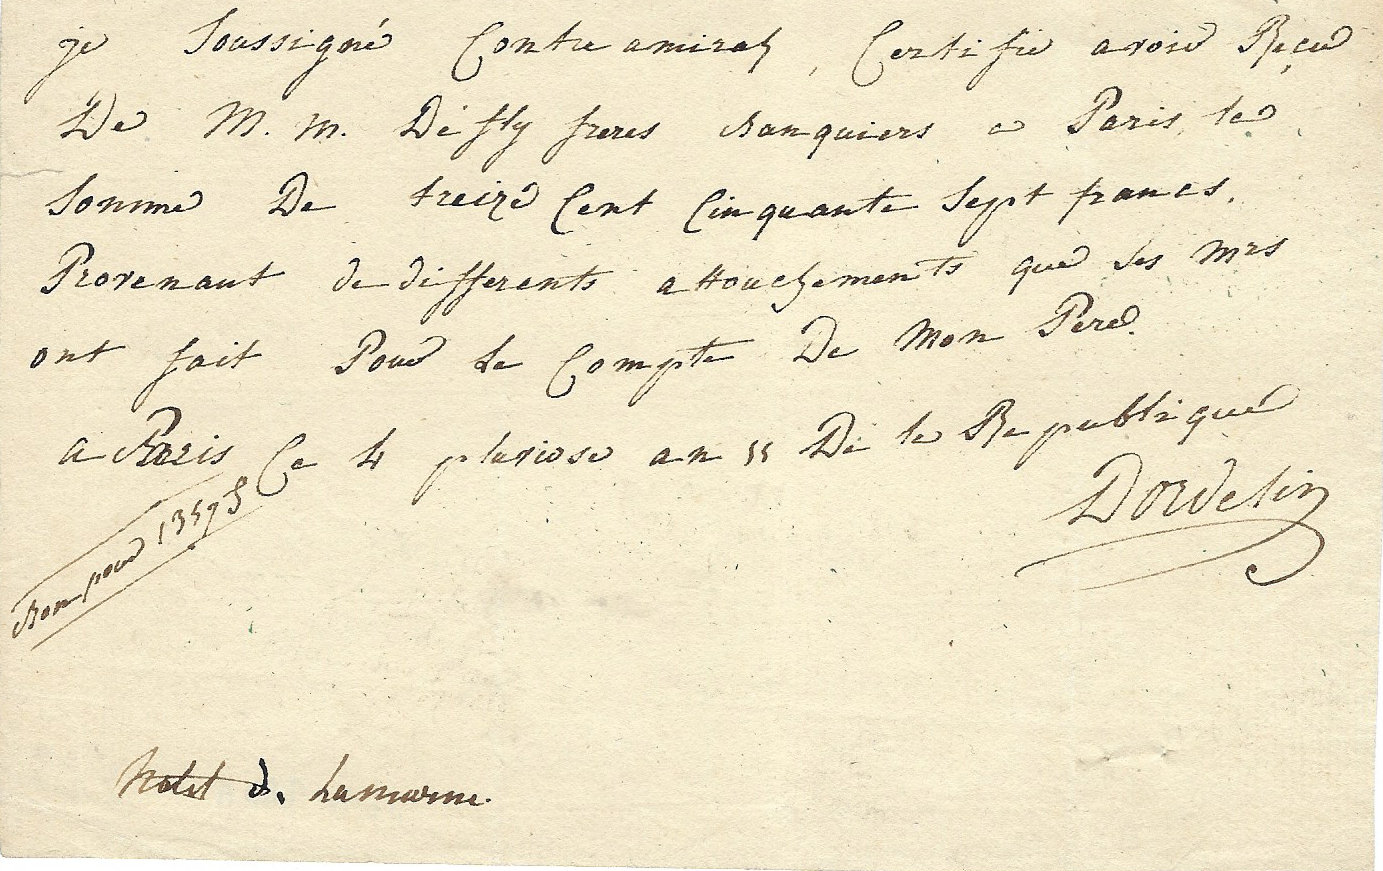 je Soussigné Contre amiral, Certifie avoir Reçu
De M. m. Défly freres Banquiers a Paris, la
Somme De treize Cent Cinquante Sept francs.
Provenant de differents attouchements que ses Mrs
ont fait Pour Le Compte De Mon Pere.
a Paris Ce 4 pluviose an 11 De la Republique
Dordelin
Bon pour 1357
hotel d. Lamarine.